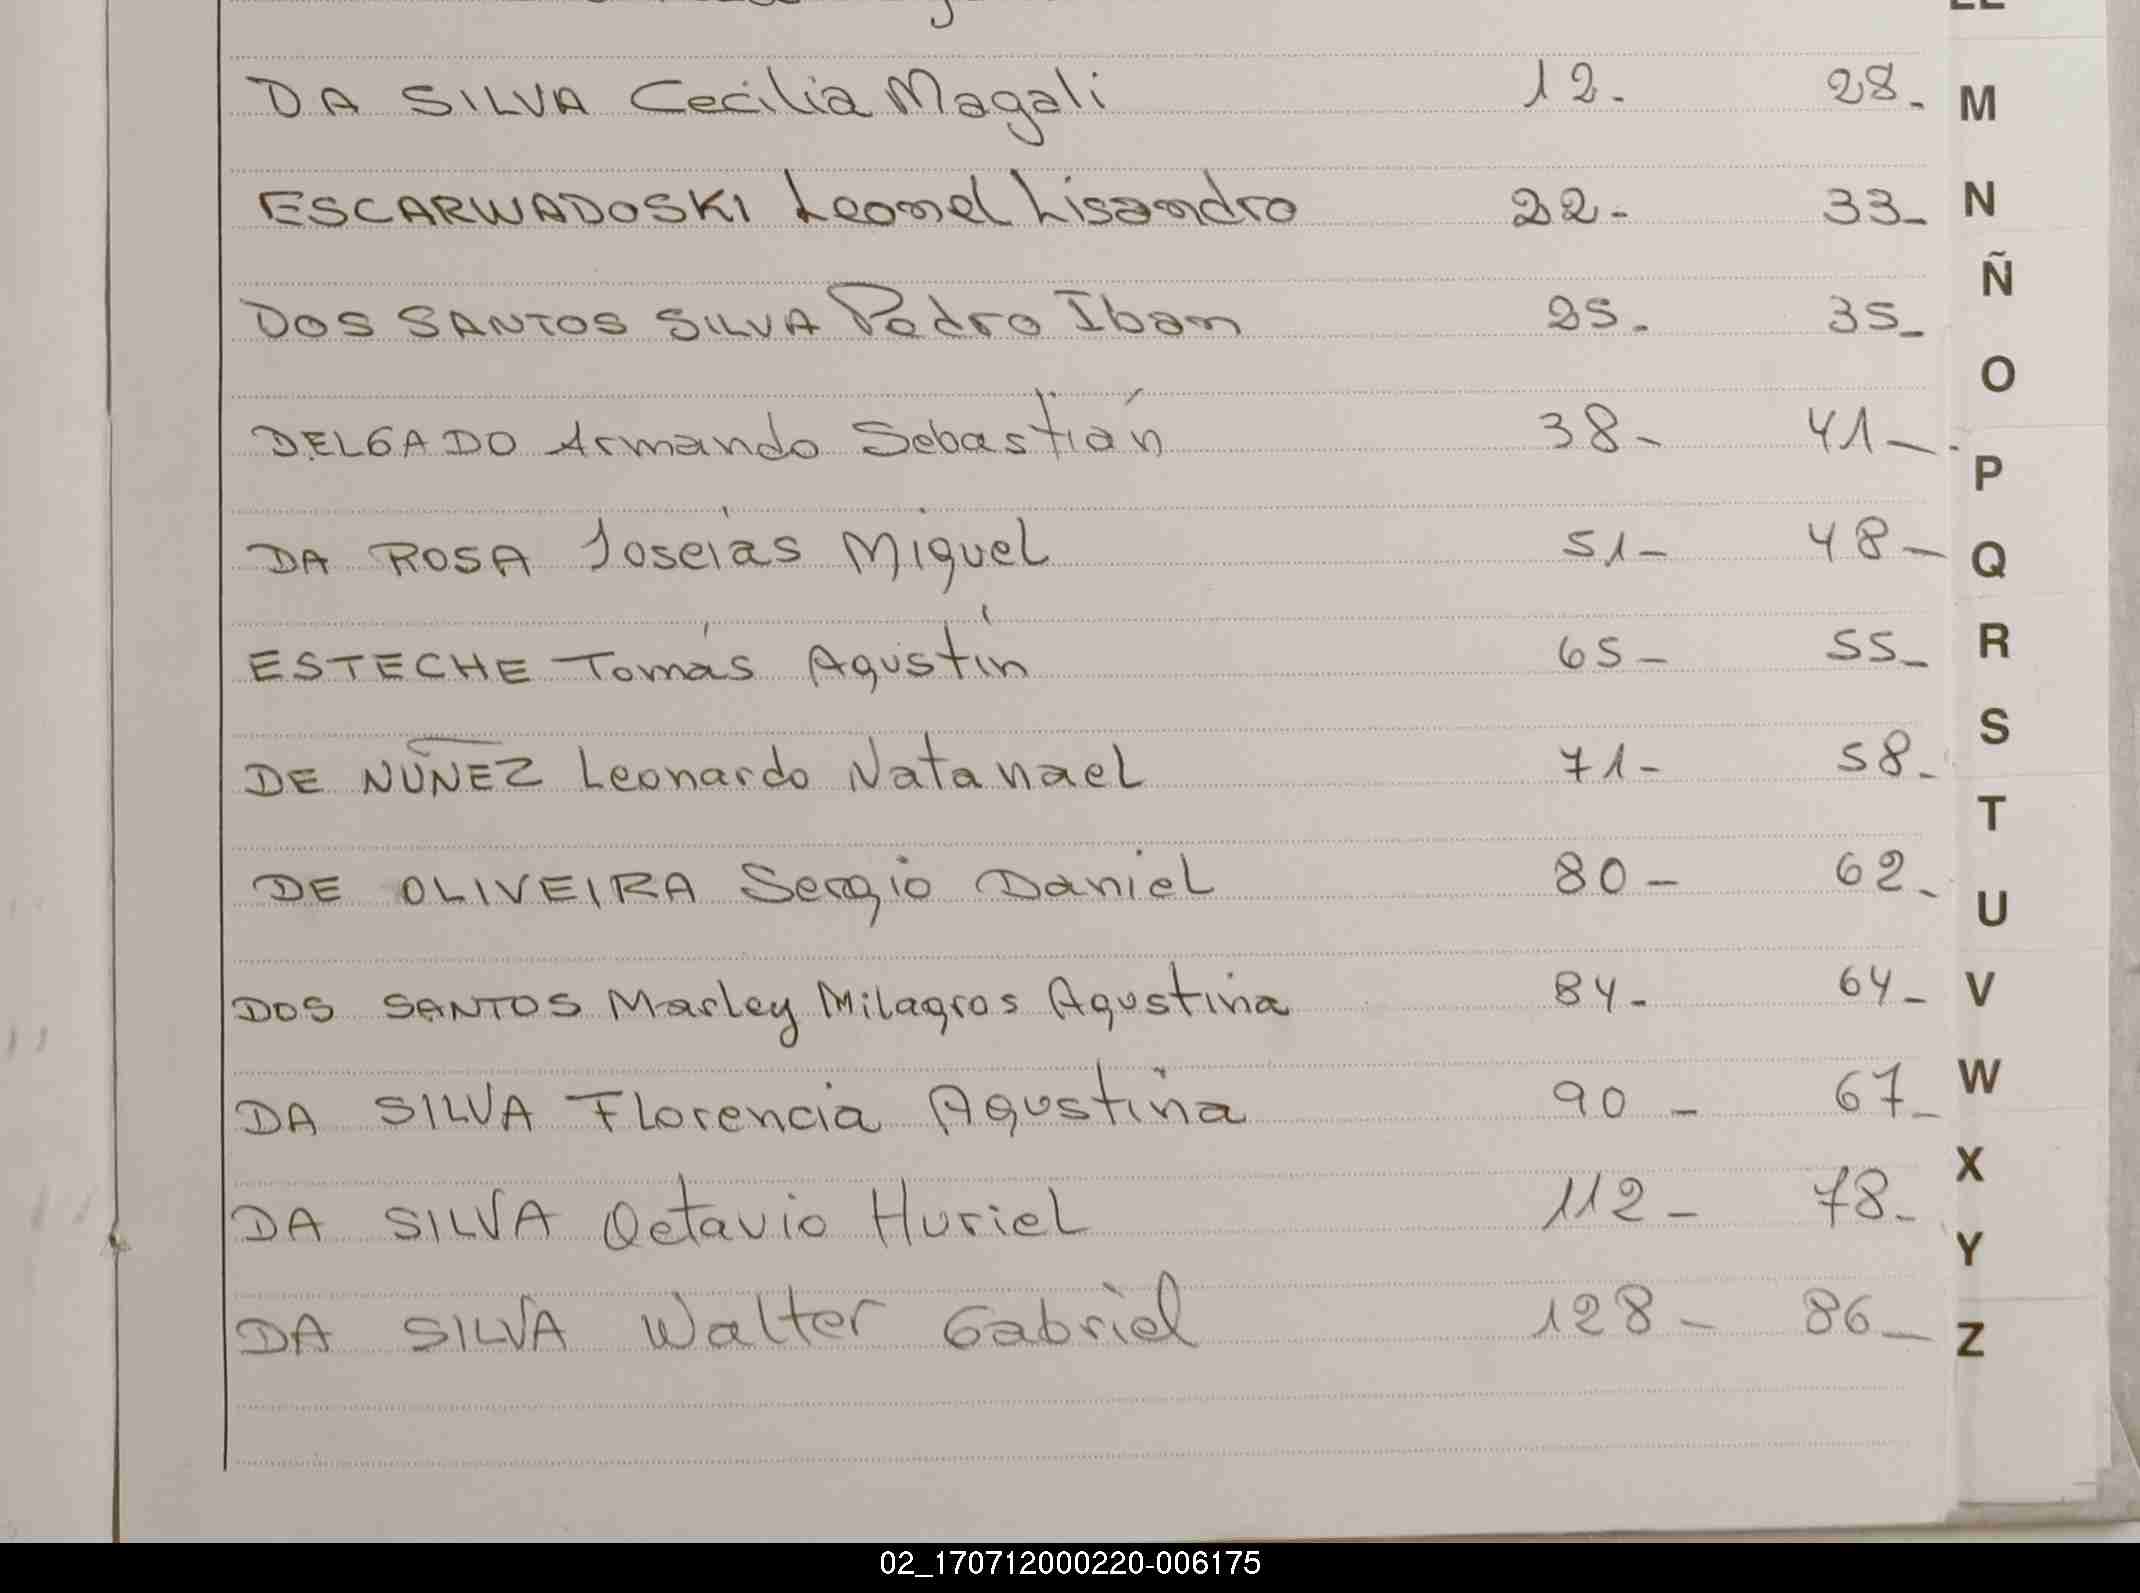 DA SILVA Cecilia Magali 12- 28-
M
ESCARWADOSKI Leonel Lisandro 22- 33-
N
Ñ
DOS SANTOS SILVA Pedro Iban 25- 35-
O
DELGADO Armando Sebastián 38- 41-
P
DA ROSA Joseías Miguel 51- 48-
Q
ESTECHE Tomás Agustín 65- 55-
R
S
DE NUÑEZ Leonardo Natanael 71- 58-
T
DE OLIVEIRA Sergio Daniel 80- 62-
U
DOS SANTOS Marley Milagros Agustina 84- 64-
V
DA SILVA Florencia Agustina 90- 67-
W
X
DA SILVA Octavio Huriel 112- 78-
Y
DA SILVA Walter Gabriel 128- 86-
Z
02_170712000220-006175